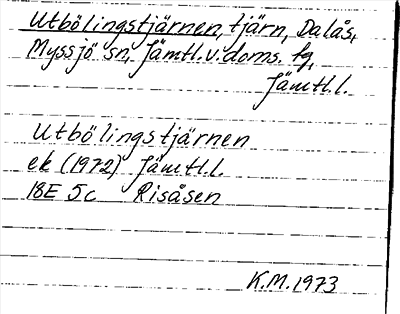 Utbölingstjärnen, tjärn, Dalås,
Myssjö sn, Jämtl.v.doms. fg,
Jämtl.l.
Utbölingstjärnen
ek (1972) Jämtl.l.
18E 5c Risåsen
K.M.1973